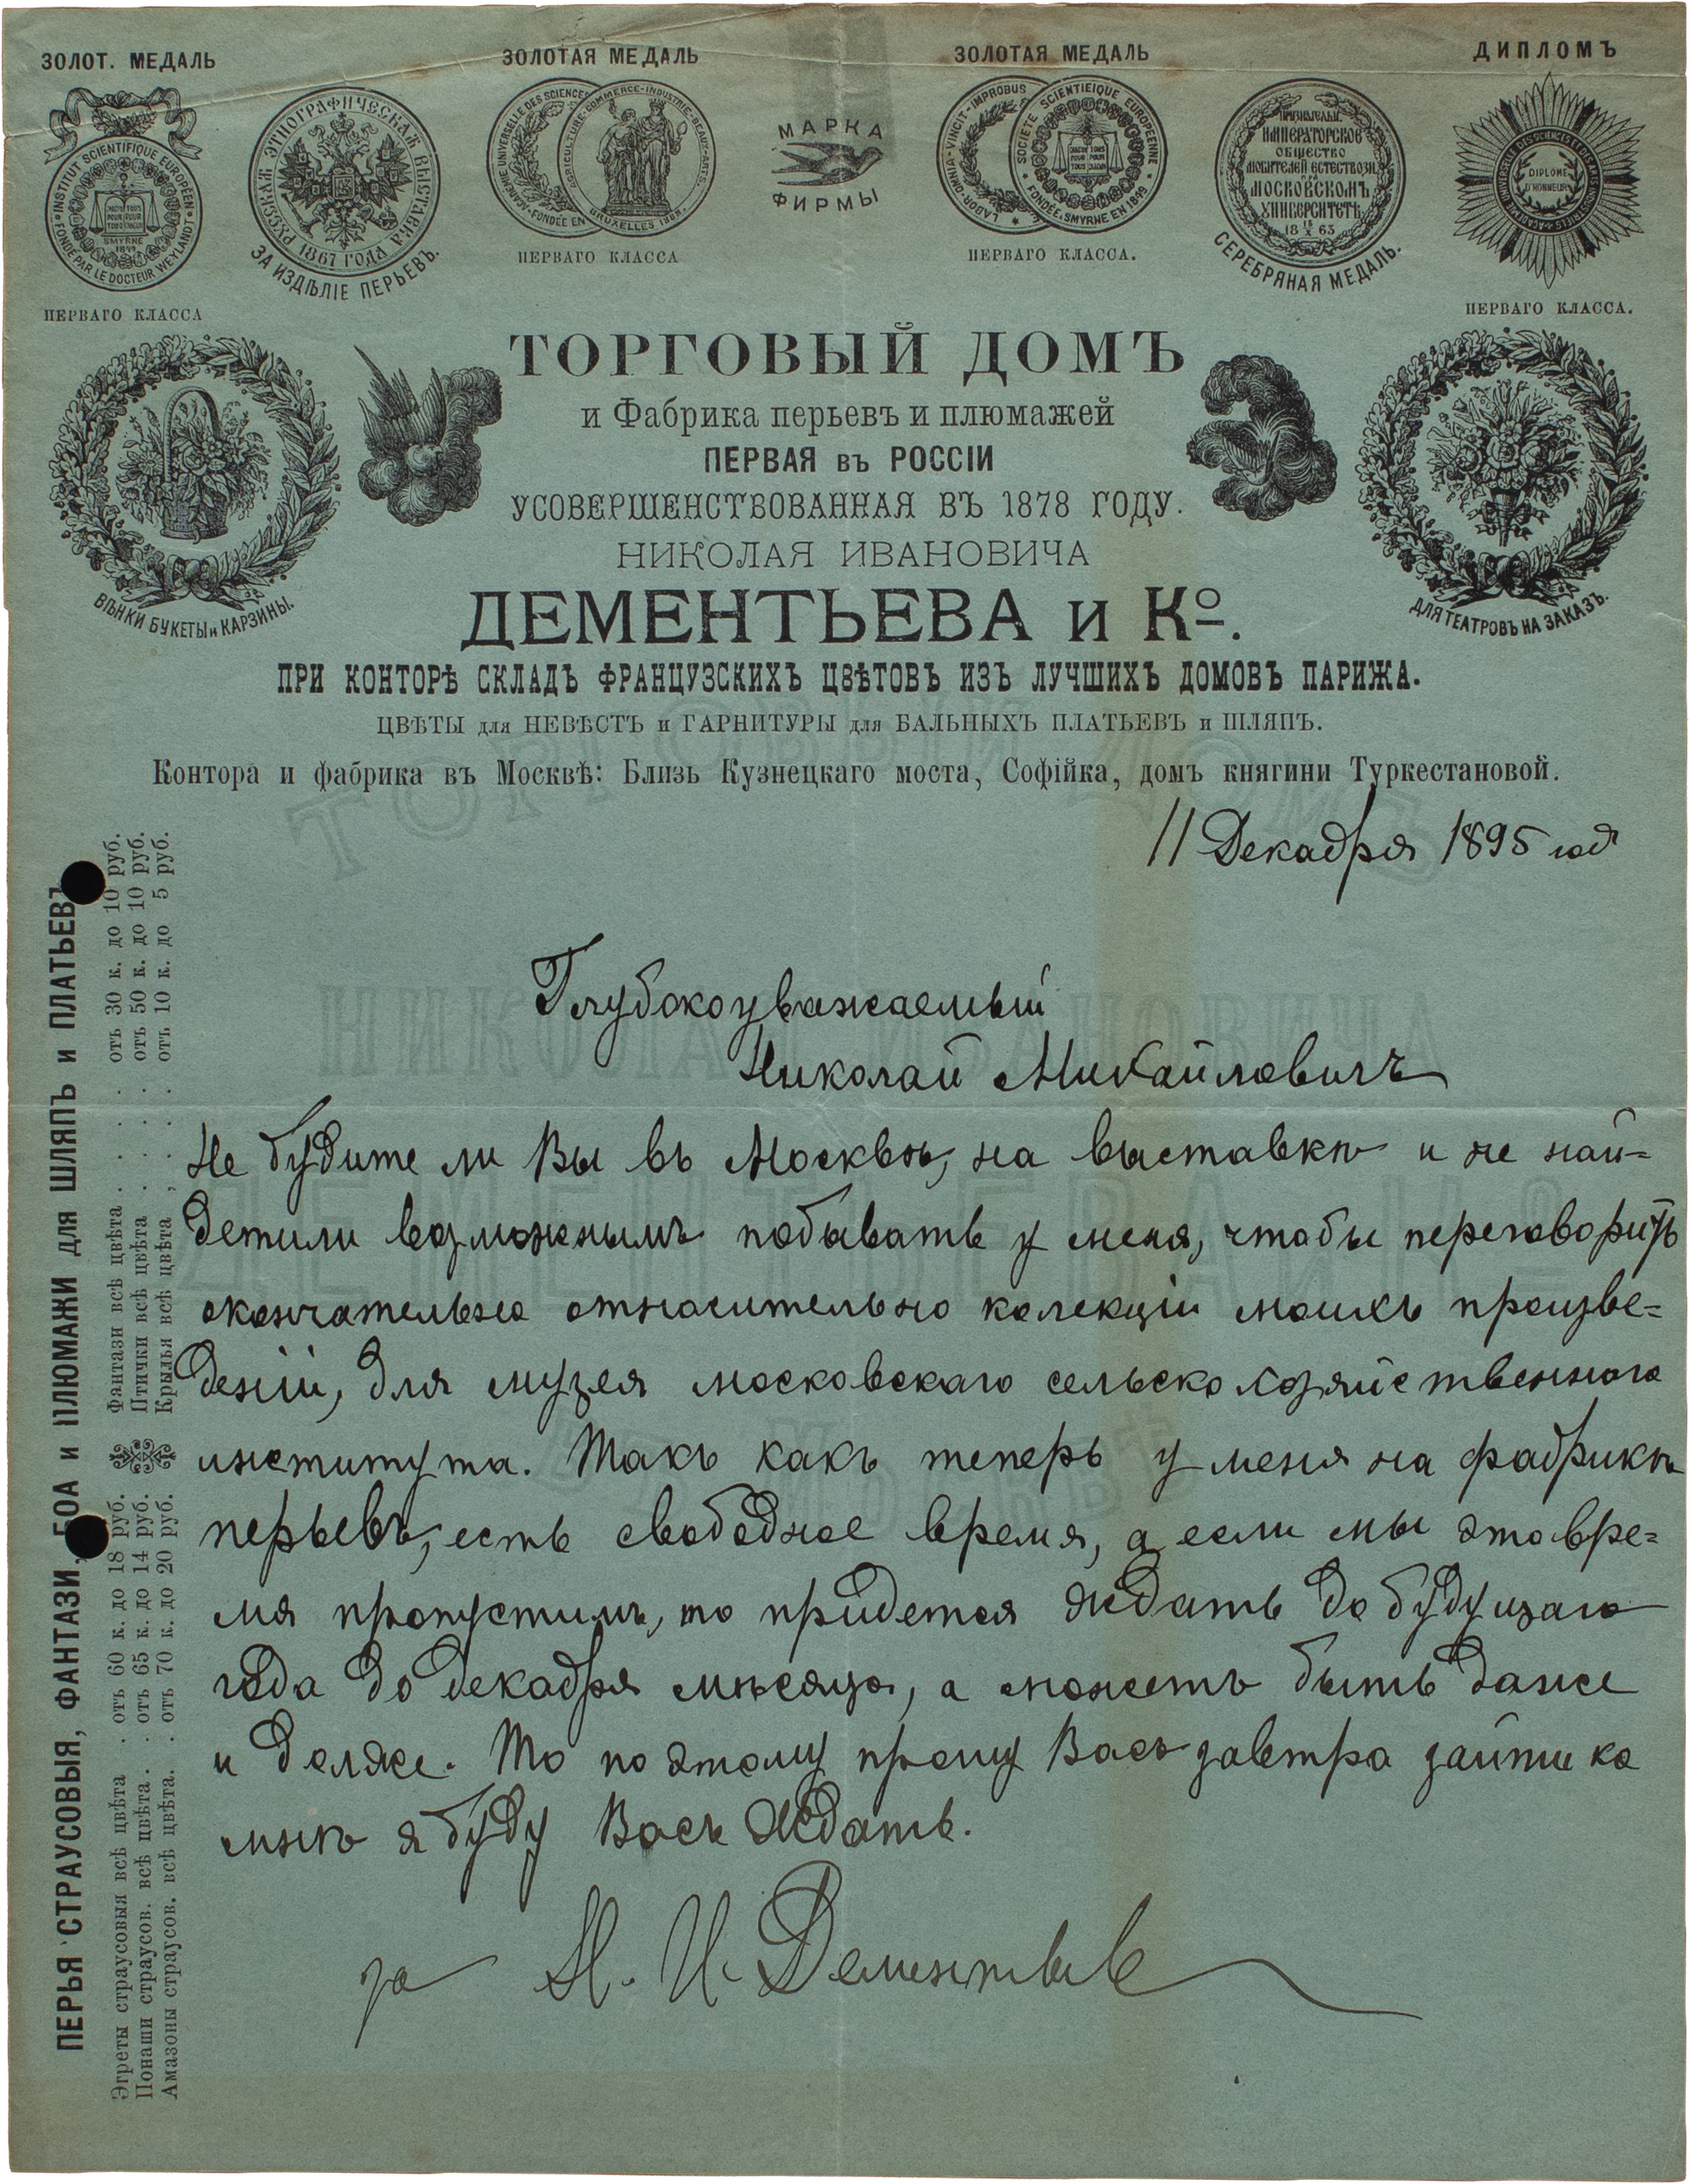 ЗОЛОТ. МЕДАЛЬ
ЗОЛОТАЯ МЕДАЛЬ
ЗОЛОТАЯ МЕДАЛЬ
ДИПЛОМЪ
INSTITUT SCIENTIFIQUE EUROPÉEN
FONDÉ PAR LE DOCTEUR WEYLANDT
SMYRNE
РУССКАЯ ЭТНОГРАФИЧЕСКАЯ ВЫСТАВКА
1867 ГОДА
ЗА ИЗДѢЛІЕ ПЕРЬЕВЪ.
UNIVERSELLE DES SCIENCES
FONDÉE EN
AGRICULTURE-COMMERCE-INDUSTRIE-BEAUX-ARTS
BRUXELLES
МАРКА
ФИРМЫ
LABOR-OMNIA-VINCIT-IMPROBUS
SOCIÉTÉ SCIENTIFIQUE EUROPÉENNE
FONDÉE, SMYRNE EN 1849
ИМПЕРАТОРСКОЕ
ОБЩЕСТВО
ЛЮБИТЕЛЕЙ ЕСТЕСТВОЗН.
МОСКОВСКОМЪ
УНИВЕРСИТЕТѢ
18 63
СЕРЕБРЯНАЯ МЕДАЛЬ.
DIPLOME
D'HONNEUR
ПЕРВАГО КЛАССА
ПЕРВАГО КЛАССА
ПЕРВАГО КЛАССА.
ПЕРВАГО КЛАССА.
ТОРГОВЫЙ ДОМЪ
и Фабрика перьевъ и плюмажей
ПЕРВАЯ въ РОССІИ
УСОВЕРШЕНСТВОВАННАЯ ВЪ 1878 ГОДУ.
НИКОЛАЯ ИВАНОВИЧА
ДЕМЕНТЬЕВА и Кº.
ВѢНКИ БУКЕТЫ и КАРЗИНЫ.
ДЛЯ ТЕАТРОВЪ НА ЗАКАЗЪ.
ПРИ КОНТОРѢ СКЛАДЪ ФРАНЦУЗСКИХЪ ЦВѢТОВЪ ИЗЪ ЛУЧШИХЪ ДОМОВЪ ПАРИЖА.
ЦВѢТЫ для НЕВѢСТЪ и ГАРНИТУРЫ для БАЛЬНЫХЪ ПЛАТЬЕВЪ и ШЛЯПЪ.
Контора и фабрика въ Москвѣ: Близь Кузнецкаго моста, Софійка, домъ княгини Туркестановой.
11 Декабря 1895 год
Глубокоуважаемый
Николай Михайловичъ
Не будите ли Вы въ Москвѣ, на выставкѣ и не най-
детили возможнымъ побывать у меня, чтобы переговорить
окончательно относительно колекціи моихъ произве-
деній, для музея московскаго сельскохозяйственнаго
института. Такъ какъ теперь у меня на фабрикѣ
перьевъ, есть свободное время, а если мы это вре-
мя пропустимъ, то придется ждать до будущаго
года до декабря мѣсяца, а можетъ быть даже
и долже. То по этому прошу Васъ завтра зайти ко
мнѣ я буду Васъ ждать.
за Н. И. Дементьев
ПЕРЬЯ СТРАУСОВЫЯ, ФАНТАЗИ, БОА и ПЛЮМАЖИ для ШЛЯПЪ и ПЛАТЬЕВЪ
Эгреты страусовыя всѣ цвѣта . отъ 60 к. до 18 руб. Фантази всѣ цвѣта . . . . отъ 30 к. до 10 руб.
Понаши страусов. всѣ цвѣта . . отъ 65 к. до 14 руб. Птички всѣ цвѣта . . . . отъ 50 к. до 10 руб.
Амазоны страусов. всѣ цвѣта. . отъ 70 к. до 20 руб. Крылья всѣ цвѣта , . . . отъ 10 к. до 5 руб.
ТОРГОВЫЙ ДОМЪ
НИКОЛАЯ ИВАНОВИЧА
ДЕМЕНТЬЕВА и Кº